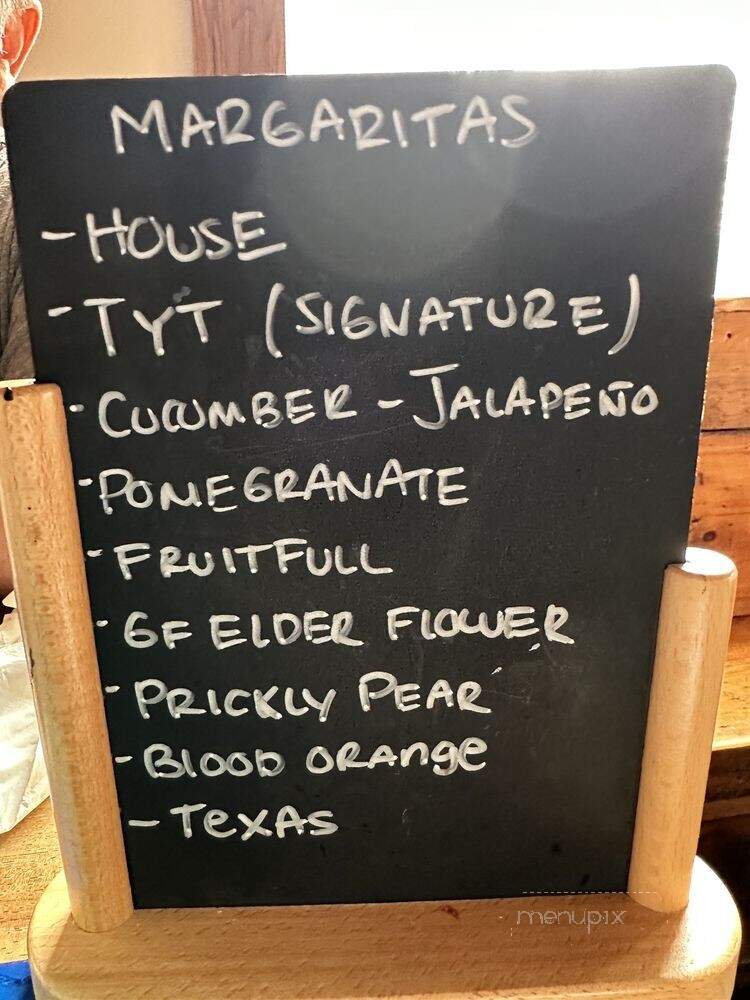 MARGARITAS
- HOUSE
- TYT (SIGNATURE)
- CUCUMBER - JALAPEÑO
- POMEGRANATE
- FRUITFULL
- GF ELDER FLOWER
- PRICKLY PEAR
- BLOOD ORANge
- TeXAS
menupix